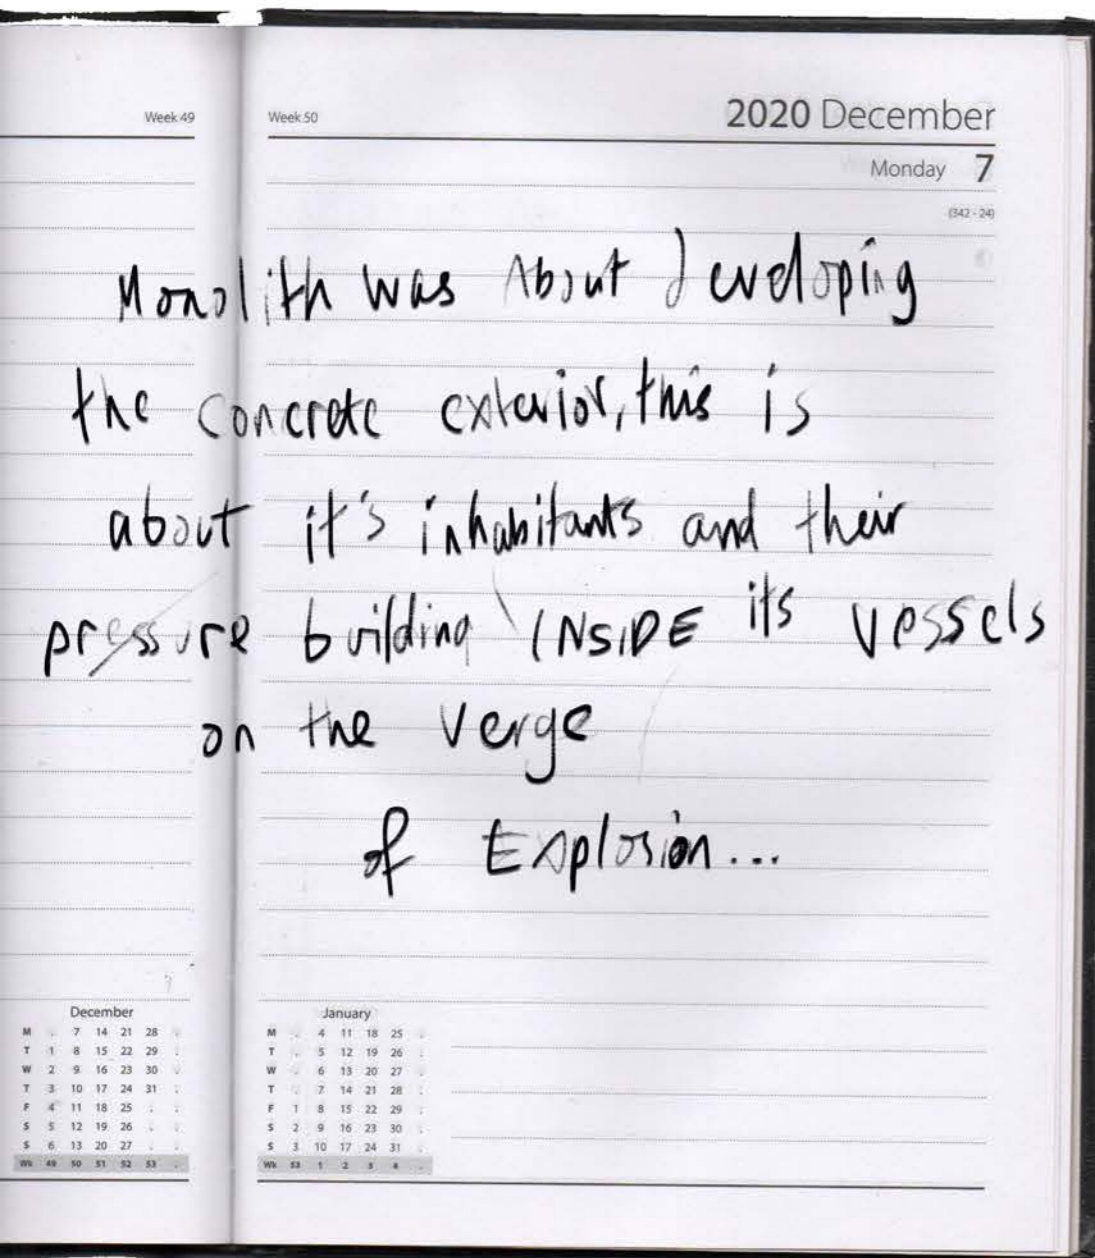 Week 49
Week 50
2020 December
Monday 7
(342 - 24)
Monolith was About Developing
the concrete exterior, this is
about it's inhabitants and their
pressure building INSIDE its vessels
on the verge
of Explosion...
December
M 7 14 21 28
T 1 8 15 22 29
W 2 9 16 23 30
T 3 10 17 24 31
F 4 11 18 25
S 5 12 19 26
S 6 13 20 27
Wk 49 50 51 52 53
January
M 4 11 18 25
T 5 12 19 26
W 6 13 20 27
T 7 14 21 28
F 1 8 15 22 29
S 2 9 16 23 30
S 3 10 17 24 31
Wk 53 1 2 3 4